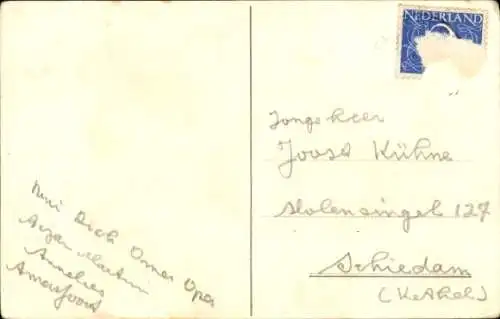 NEDERLAND
Jongeheer
Joost Kühne
Molensingel 127
Schiedam
(Kethel)
Oma Opa
Arjan Martin
Annelies
Amersfoort